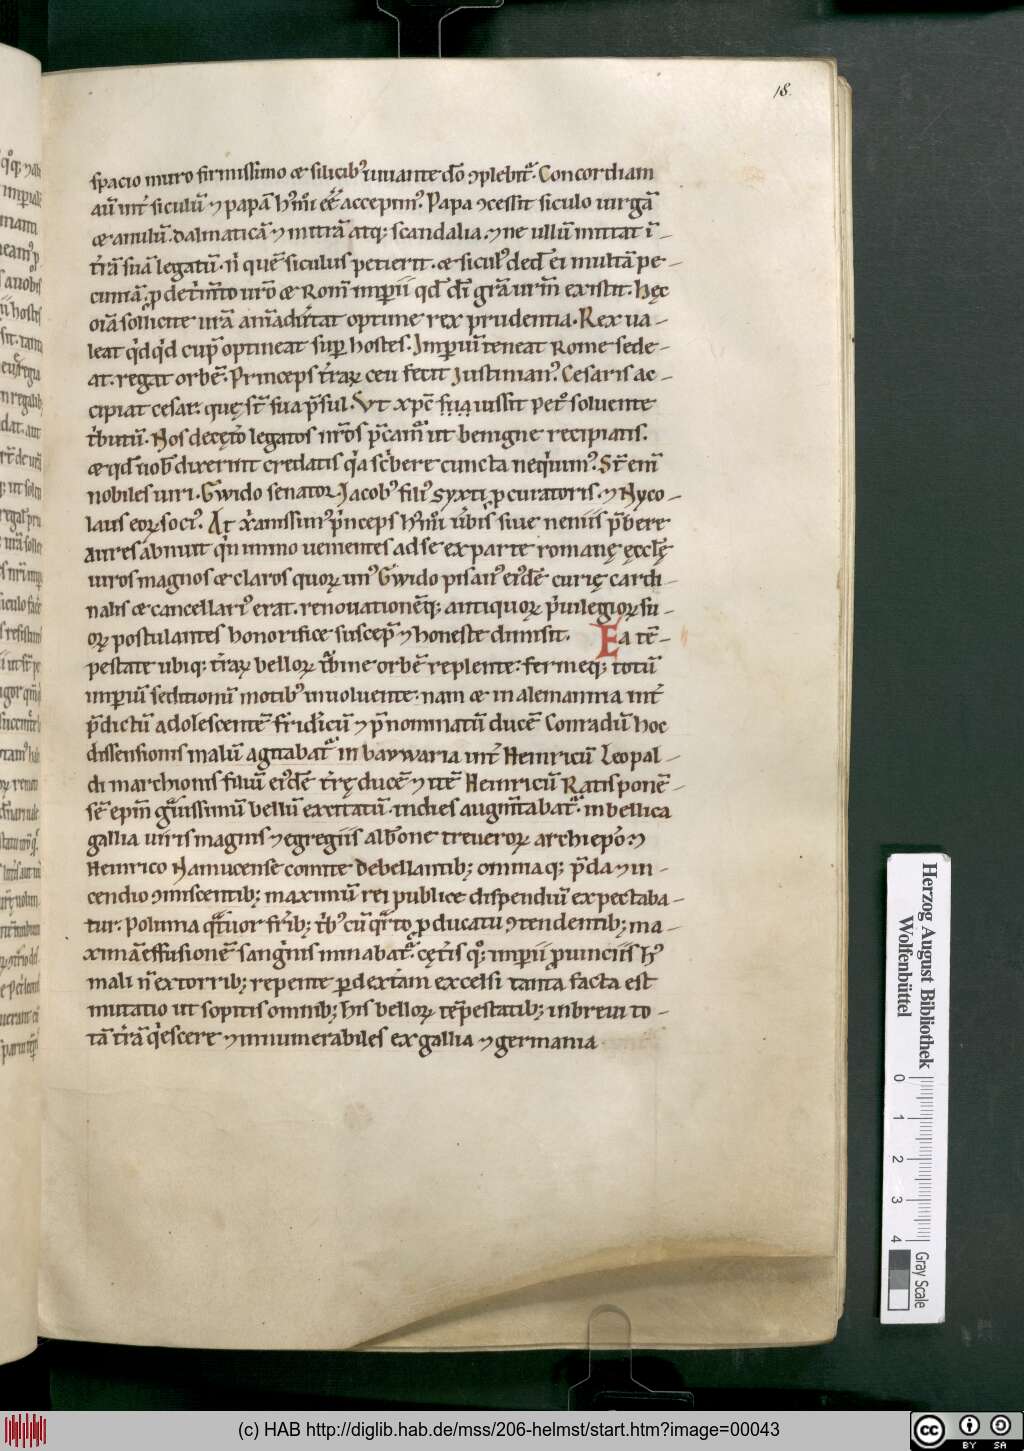 18.
spacio muro firmissimo & silicibꝰ iuuante dō ꝯplebit᷑. Concordiam
aū int̄ siculū ⁊ papā hmōi eē accepimꝰ. Papa ꝯcessit siculo uirgā
& anulū. dalmaticā ⁊ mitrā atq; scandalia. ⁊ ne ullū mittat ī-
t̄rā suā legatū. n̄ quē siculus petierit. & siculꝰ ded̄ ei multā pe-
cuniā, ꝓ det̄m̄to uro & Rom̄ impii qd̄ dī grā urm̄ existit. Hęc
oīā sollicite urā animad́utat optime rex prudentia. Rex ua-
leat q́dq́d cupꝰ optineat suꝑ hostes. Imperiū teneat Rome sede-
at. regat orbē. Princeps t̄rarꝝ ceu fecit Iustinianꝰ. Cesaris ac-
cipiat cesar. quę st̄ sua p̄sul. Vt xp̄c iussit petꝰ soluente
t̄butū. Nos decęto legatos nros p̄camꝰ ut benigne recipiatis.
& qd̄ uob̄ dixerint credatis q́a sc̄bere cuncta neq́uimꝰ. St̄ eni
nobiles uiri. Gwido senator. Iacobꝰ filiꝰ syxti ꝓcuratoris. ⁊ Nyco-
laus eoꝝ sociꝰ. At x̄anissimꝰ p̄nceps hmōi ūbis siue neniis p̄bere
aures abnuit q́n immo uementes ad se ex parte romanę ęcclę̄
uiros magnos & claros quoꝝ unꝰ Gwido pisanꝰ eiꝰdē curię cardi-
nalis & cancellariꝰ erat. renouationēq; antiquoꝝ p̄uilegioꝝ su-
oꝝ postulantes honorifice suscep̄ ⁊ honeste dimisit. Ea tē-
pestate ubiq; t̄raꝝ belloꝝ t̄bine orbē replente. fermeq; totū
imperiū seditionū motibꝰ inuoluente. nam & in alemannia int̄
p̄dictū adolescentē frid́icū ⁊ p̄nominatū ducē Conradū hoc
dissensionis malū agitabat᷑ in baywaria int̄ Heinricū Leopal-
di marchionis filiū eiꝰdē t̄rę ducē ⁊ itē Heinricū Ratisponē-
sē epm̄ g̊uissimū bellū excitatū. indies augm̄tabat᷑. in bellica
gallia uiris magnis ⁊ egregiis alb̄one treueroꝝ archiepo ⁊
Heinrico Namucense comite debellantib; omniaq; p̄da ⁊ in-
cendio ꝯmiscentib; maximū rei publice dispendiū expectaba-
tur. Polunia quatuor frib; trib; cū quarto ꝓ ducatu ꝯtendentib; ma-
ximā effusionē sanguinis minabat᷑. cęt̄is qͦ; imperii prouinciis hꝰ
mali n̄ extorrib; repente ꝑ dext̄am excelsi tanta facta est
mutatio ut sopitis omnib; his belloꝝ tēpestatib; in breui to-
tā t̄rā q́escere ⁊ innumerabiles ex gallia ⁊ germania
Herzog August Bibliothek
Wolfenbüttel
0 1 2 3 4
Gray Scale
(c) HAB http://diglib.hab.de/mss/206-helmst/start.htm?image=00043
cc BY SA